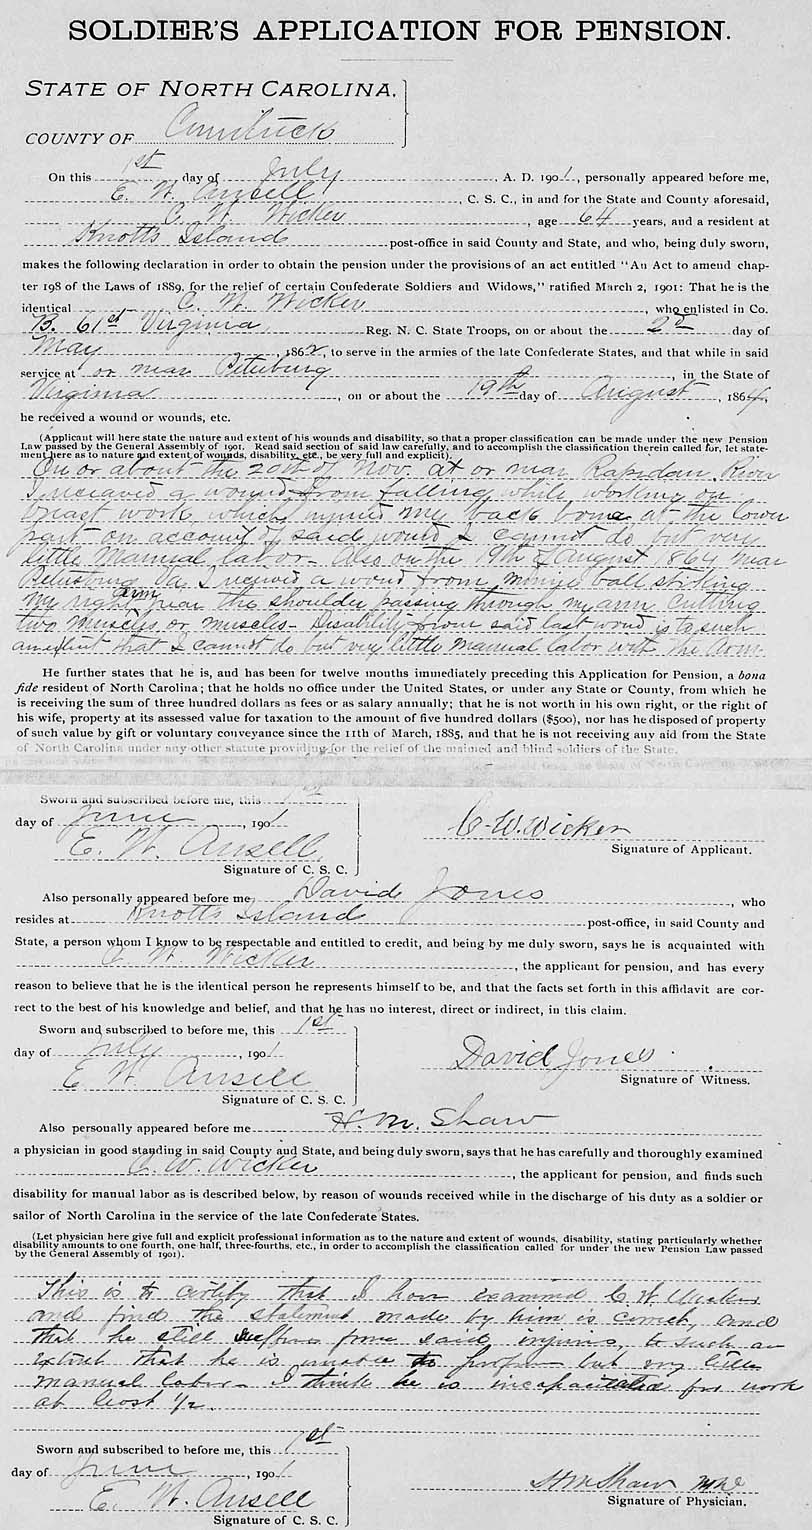 SOLDIER'S APPLICATION FOR PENSION.
STATE OF NORTH CAROLINA,
COUNTY OF Currituck
On this 1st day of July, A. D. 1901, personally appeared before me,
E. W. Ansell, C. S. C., in and for the State and County aforesaid,
C. W. Wicker, age 64 years, and a resident at
Knotts Island post-office in said County and State, and who, being duly sworn,
makes the following declaration in order to obtain the pension under the provisions of an act entitled "An Act to amend chap-
ter 198 of the Laws of 1889, for the relief of certain Confederate Soldiers and Widows," ratified March 2, 1901: That he is the
identical C. W. Wicker, who enlisted in Co.
B. 61st Virginia Reg. N. C. State Troops, on or about the 2nd day of
May, 1862, to serve in the armies of the late Confederate States, and that while in said
service at or near Petersburg, in the State of
Virginia, on or about the 19th day of August, 1864,
he received a wound or wounds, etc.
(Applicant will here state the nature and extent of his wounds and disability, so that a proper classification can be made under the new Pension
Law passed by the General Assembly of 1901. Read said section of said law carefully, and to accomplish the classification therein called for, let state-
ment here as to nature and extent of wounds, disability, etc., be very full and explicit).
On or about the 20th of Nov. at or near Rapidan River
I received a wound from falling while working on
breast work which injured my back bone at the lower
part on account of said would I cannot do but very
little manual labor - Also on the 19th of August 1864 near
Petersburg Va I received a wound from minye ball striking
my right arm near the shoulder passing through my arm cutting
two muscles or muscles - Disability from said last wond is to such
an extent that I cannot do but very little manual labor with the arm.
He further states that he is, and has been for twelve months immediately preceding this Application for Pension, a bona
fide resident of North Carolina; that he holds no office under the United States, or under any State or County, from which he
is receiving the sum of three hundred dollars as fees or as salary annually; that he is not worth in his own right, or the right of
his wife, property at its assessed value for taxation to the amount of five hundred dollars ($500), nor has he disposed of property
of such value by gift or voluntary conveyance since the 11th of March, 1885, and that he is not receiving any aid from the State
of North Carolina under any other statute providing for the relief of the maimed and blind soldiers of the State.
Sworn and subscribed before me, this 1st
day of June, 1901
C. W. Wicker
E. W. Ansell
Signature of Applicant.
Signature of C. S. C.
Also personally appeared before me David Jones, who
resides at Knotts Island post-office, in said County and
State, a person whom I know to be respectable and entitled to credit, and being by me duly sworn, says he is acquainted with
C. W. Wicker, the applicant for pension, and has every
reason to believe that he is the identical person he represents himself to be, and that the facts set forth in this affidavit are cor-
rect to the best of his knowledge and belief, and that he has no interest, direct or indirect, in this claim.
Sworn and subscribed to before me, this 1st
day of July, 1901
David Jones
E. W. Ansell
Signature of Witness.
Signature of C. S. C.
Also personally appeared before me H. M. Shaw
a physician in good standing in said County and State, and being duly sworn, says that he has carefully and thoroughly examined
C. W. Wicker, the applicant for pension, and finds such
disability for manual labor as is described below, by reason of wounds received while in the discharge of his duty as a soldier or
sailor of North Carolina in the service of the late Confederate States.
(Let physician here give full and explicit professional information as to the nature and extent of wounds, disability, stating particularly whether
disability amounts to one fourth, one half, three-fourths, etc., in order to accomplish the classification called for under the new Pension Law passed
by the General Assembly of 1901).
This is to certify that I have examined C. W. Wicker
and find the statement made by him is correct, and
that he still suffers from said injuries, to such an
extent that he is unable to perform but very little
manual labor - I think he is incapacitated for work
at least 1/2.
Sworn and subscribed to before me, this 1st
day of June, 1901
H M Shaw MD
E. W. Ansell
Signature of Physician.
Signature of C. S. C.